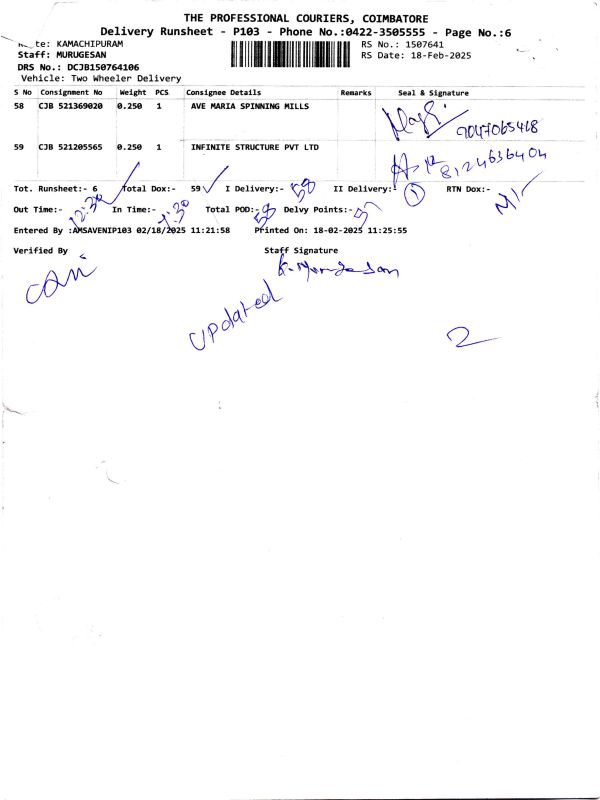 THE PROFESSIONAL COURIERS, COIMBATORE
Delivery Runsheet - P103 - Phone No.:0422-3505555 - Page No.:6
te: KAMACHIPURAM RS No.: 1507641
Staff: MURUGESAN RS Date: 18-Feb-2025
DRS No.: DCJB150764106
Vehicle: Two Wheeler Delivery
S No Consignment No Weight PCS Consignee Details Remarks Seal & Signature
58 CJB 521369020 0.250 1 AVE MARIA SPINNING MILLS
9047065418
59 CJB 521205565 0.250 1 INFINITE STRUCTURE PVT LTD
8124636404
Tot. Runsheet:- 6 Total Dox:- 59 I Delivery:- 58 II Delivery:- 1 RTN Dox:-
Out Time:- 12:30 In Time:- 4.30 Total POD:- 58 Delvy Points:-
Entered By :AMSAVENIP103 02/18/2025 11:21:58 Printed On: 18-02-2025 11:25:55
Verified By Staff Signature
K. Murugesan
Updated
2